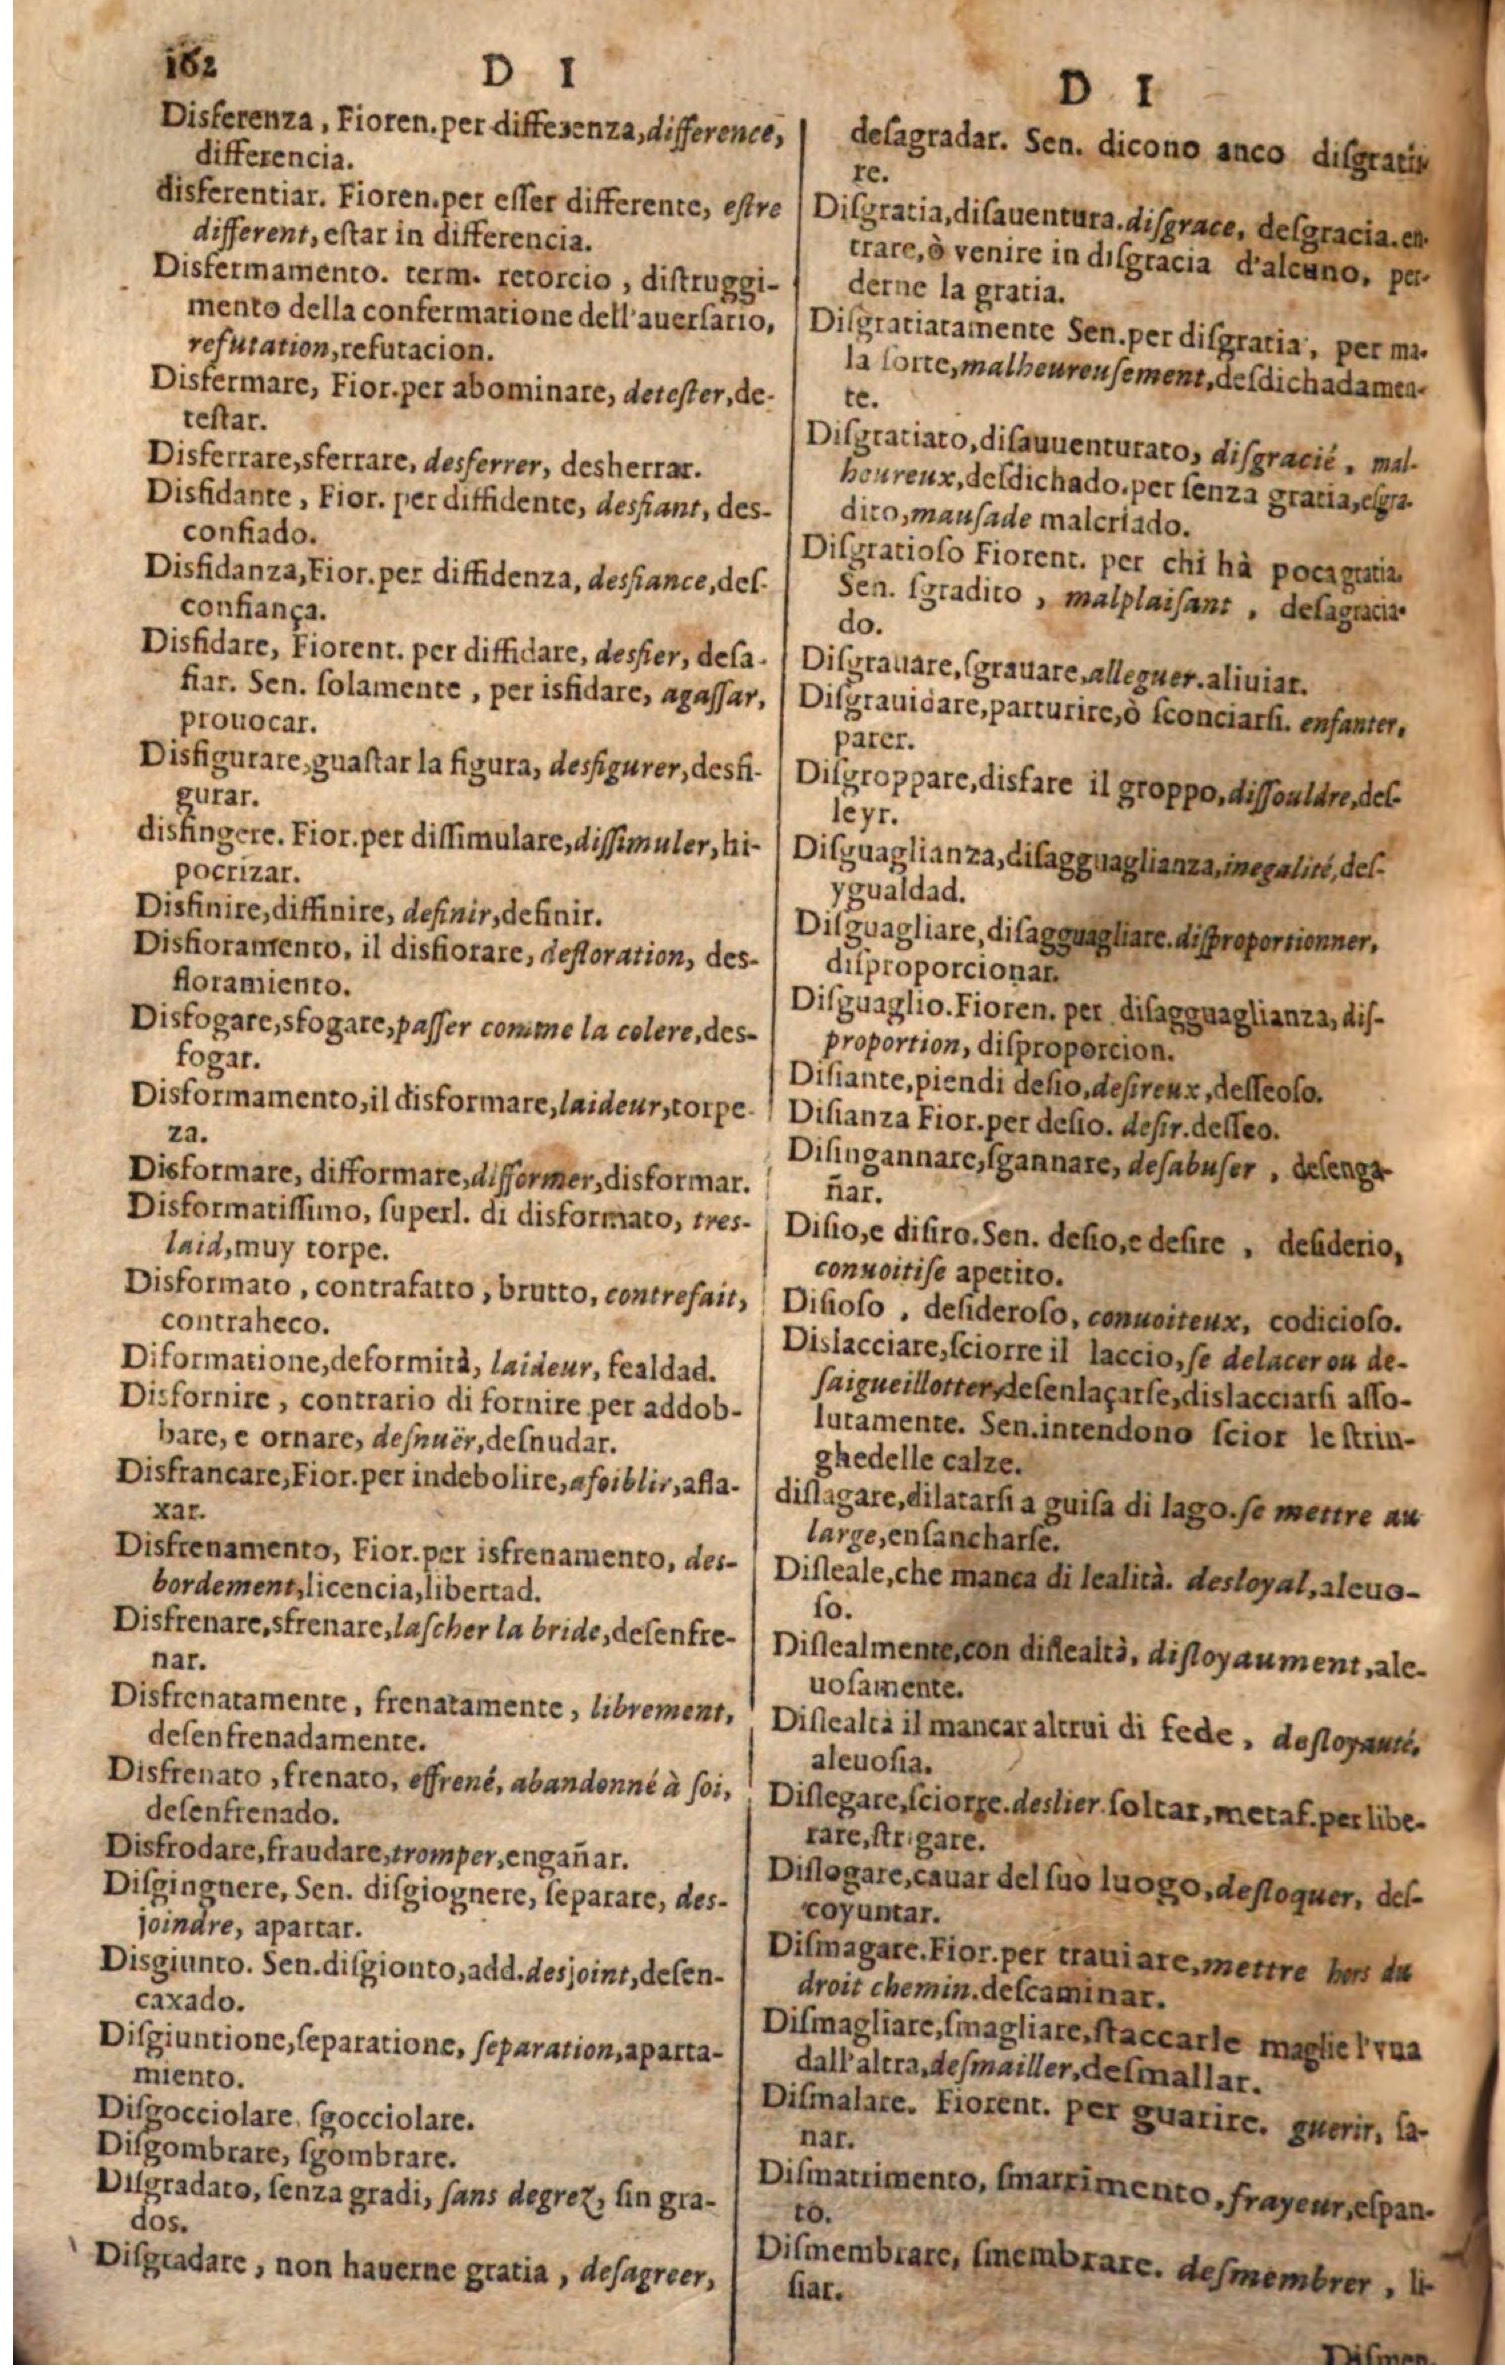 162
D I
Disferenza, Fioren.per differenza,difference,
differencia.
disferentiar. Fioren.per eſſer differente, eſtre
different,eſtar in differencia.
Disfermamento. term. retorcio, diſtruggi-
mento della confermatione dell'auerſario,
refutation,refutacion.
Disfermare, Fior.per abominare, deteſter,de-
teſtar.
Disferrare,sferrare, desferrer, desherrar.
Disfidante, Fior. per diffidente, desfiant, des-
confiado.
Disfidanza,Fior.per diffidenza, desfiance,deſ-
confiança.
Disfidare, Fiorent. per diffidare, desfier, deſa-
fiar. Sen. ſolamente, per isfidare, agaſſar,
prouocar.
Disfigurare,guaſtar la figura, desfigurer,desfi-
gurar.
disfingere. Fior.per diſſimulare,diſſimuler,hi-
pocrizar.
Disfinire,diffinire, definir,definir.
Disfioramento, il disfiorare, defloration, des-
floramiento.
Disfogare,sfogare,paſſer comme la colere,des-
fogar.
Disformamento,il disformare,laideur,torpe-
za.
Disformare, difformare,difformer,disformar.
Disformatiſſimo, ſuperl. di disformato, tres-
laid,muy torpe.
Disformato, contrafatto, brutto, contrefait,
contraheco.
Diformatione,deformità, laideur, fealdad.
Disfornire, contrario di fornire per addob-
bare, e ornare, deſnuër,deſnudar.
Disfrancare,Fior.per indebolire,afoiblir,afla-
xar.
Disfrenamento, Fior.per isfrenamento, des-
bordement,licencia,libertad.
Disfrenare,sfrenare,laſcher la bride,deſenfre-
nar.
Disfrenatamente, frenatamente, librement,
deſenfrenadamente.
Disfrenato,frenato, effrené, abandonné à ſoi,
deſenfrenado.
Disfrodare,fraudare,tromper,engañar.
Diſgingnere, Sen. diſgiognere, ſeparare, des-
joindre, apartar.
Disgiunto. Sen.diſgionto,add.desjoint,deſen-
caxado.
Diſgiuntione,ſeparatione, ſeparation,aparta-
miento.
Diſgocciolare, ſgocciolare.
Diſgombrare, ſgombrare.
Diſgradato, ſenza gradi, ſans degrez, ſin gra-
dos.
Diſgradare, non hauerne gratia, deſagreer,
D I
deſagradar. Sen. dicono anco diſgratia-
re.
Diſgratia,diſauentura.diſgrace, deſgracia.en-
trare,ò venire in diſgracia d'alcuno, per-
derne la gratia.
Diſgratiatamente Sen.per diſgratia, per ma-
la ſorte,malheureuſement,deſdichadamen-
te.
Diſgratiato,diſauuenturato, diſgracié, mal-
heureux,deſdichado.per ſenza gratia,eſgra-
dito,mauſade malcriado.
Diſgratioſo Fiorent. per chi hà poca gratia.
Sen. ſgradito, malplaiſant, deſagracia-
do.
Diſgrauare,ſgrauare,alleguer.aliuiar.
Diſgrauidare,parturire,ò ſconciarſi. enfanter,
parer.
Diſgroppare,disfare il groppo,diſſouldre,deſ-
leyr.
Diſguaglianza,diſagguaglianza,inegalité,deſ-
ygualdad.
Diſguagliare,diſagguagliare.diſproportionner,
diſproporcionar.
Diſguaglio.Fioren. per diſagguaglianza,diſ-
proportion, diſproporcion.
Diſiante,piendi deſio,deſireux,deſſeoſo.
Diſianza Fior.per deſio. deſir.deſſeo.
Diſingannare,ſgannare, deſabuſer, deſenga-
ñar.
Diſio,e diſiro.Sen. deſio,e deſire, deſiderio,
conuoitiſe apetito.
Diſioſo, deſideroſo, conuoiteux, codicioſo.
Dislacciare,ſciorre il laccio,ſe delacer ou de-
ſaigueillotter,deſenlaçarſe,dislacciarſi aſſo-
lutamente. Sen.intendono ſcior le ſtrin-
ghedelle calze.
diſlagare,dilatarſi a guiſa di lago.ſe mettre au
large,enſancharſe.
Diſleale,che manca di lealità. desloyal,aleuo-
ſo.
Diſlealmente,con diſlealtà, diſloyaument,ale-
uoſamente.
Diſlealtà il mancar altrui di fede, deſloyauté,
aleuoſia.
Diſlegare,ſciorre.deslier.ſoltar,metaf.per libe-
rare,ſtrigare.
Diſlogare,cauar del ſuo luogo,deſloquer, deſ-
coyuntar.
Diſmagare.Fior.per trauiare,mettre hors du
droit chemin.deſcaminar.
Diſmagliare,ſmagliare,ſtaccarle maglie l'vna
dall'altra,deſmailler,deſmallar.
Diſmalare. Fiorent. per guarire. guerir, ſa-
nar.
Diſmarrimento, ſmarrimento,frayeur,eſpan-
to.
Diſmembrare, ſmembrare. deſmembrer, li-
ſiar.
Diſmen-